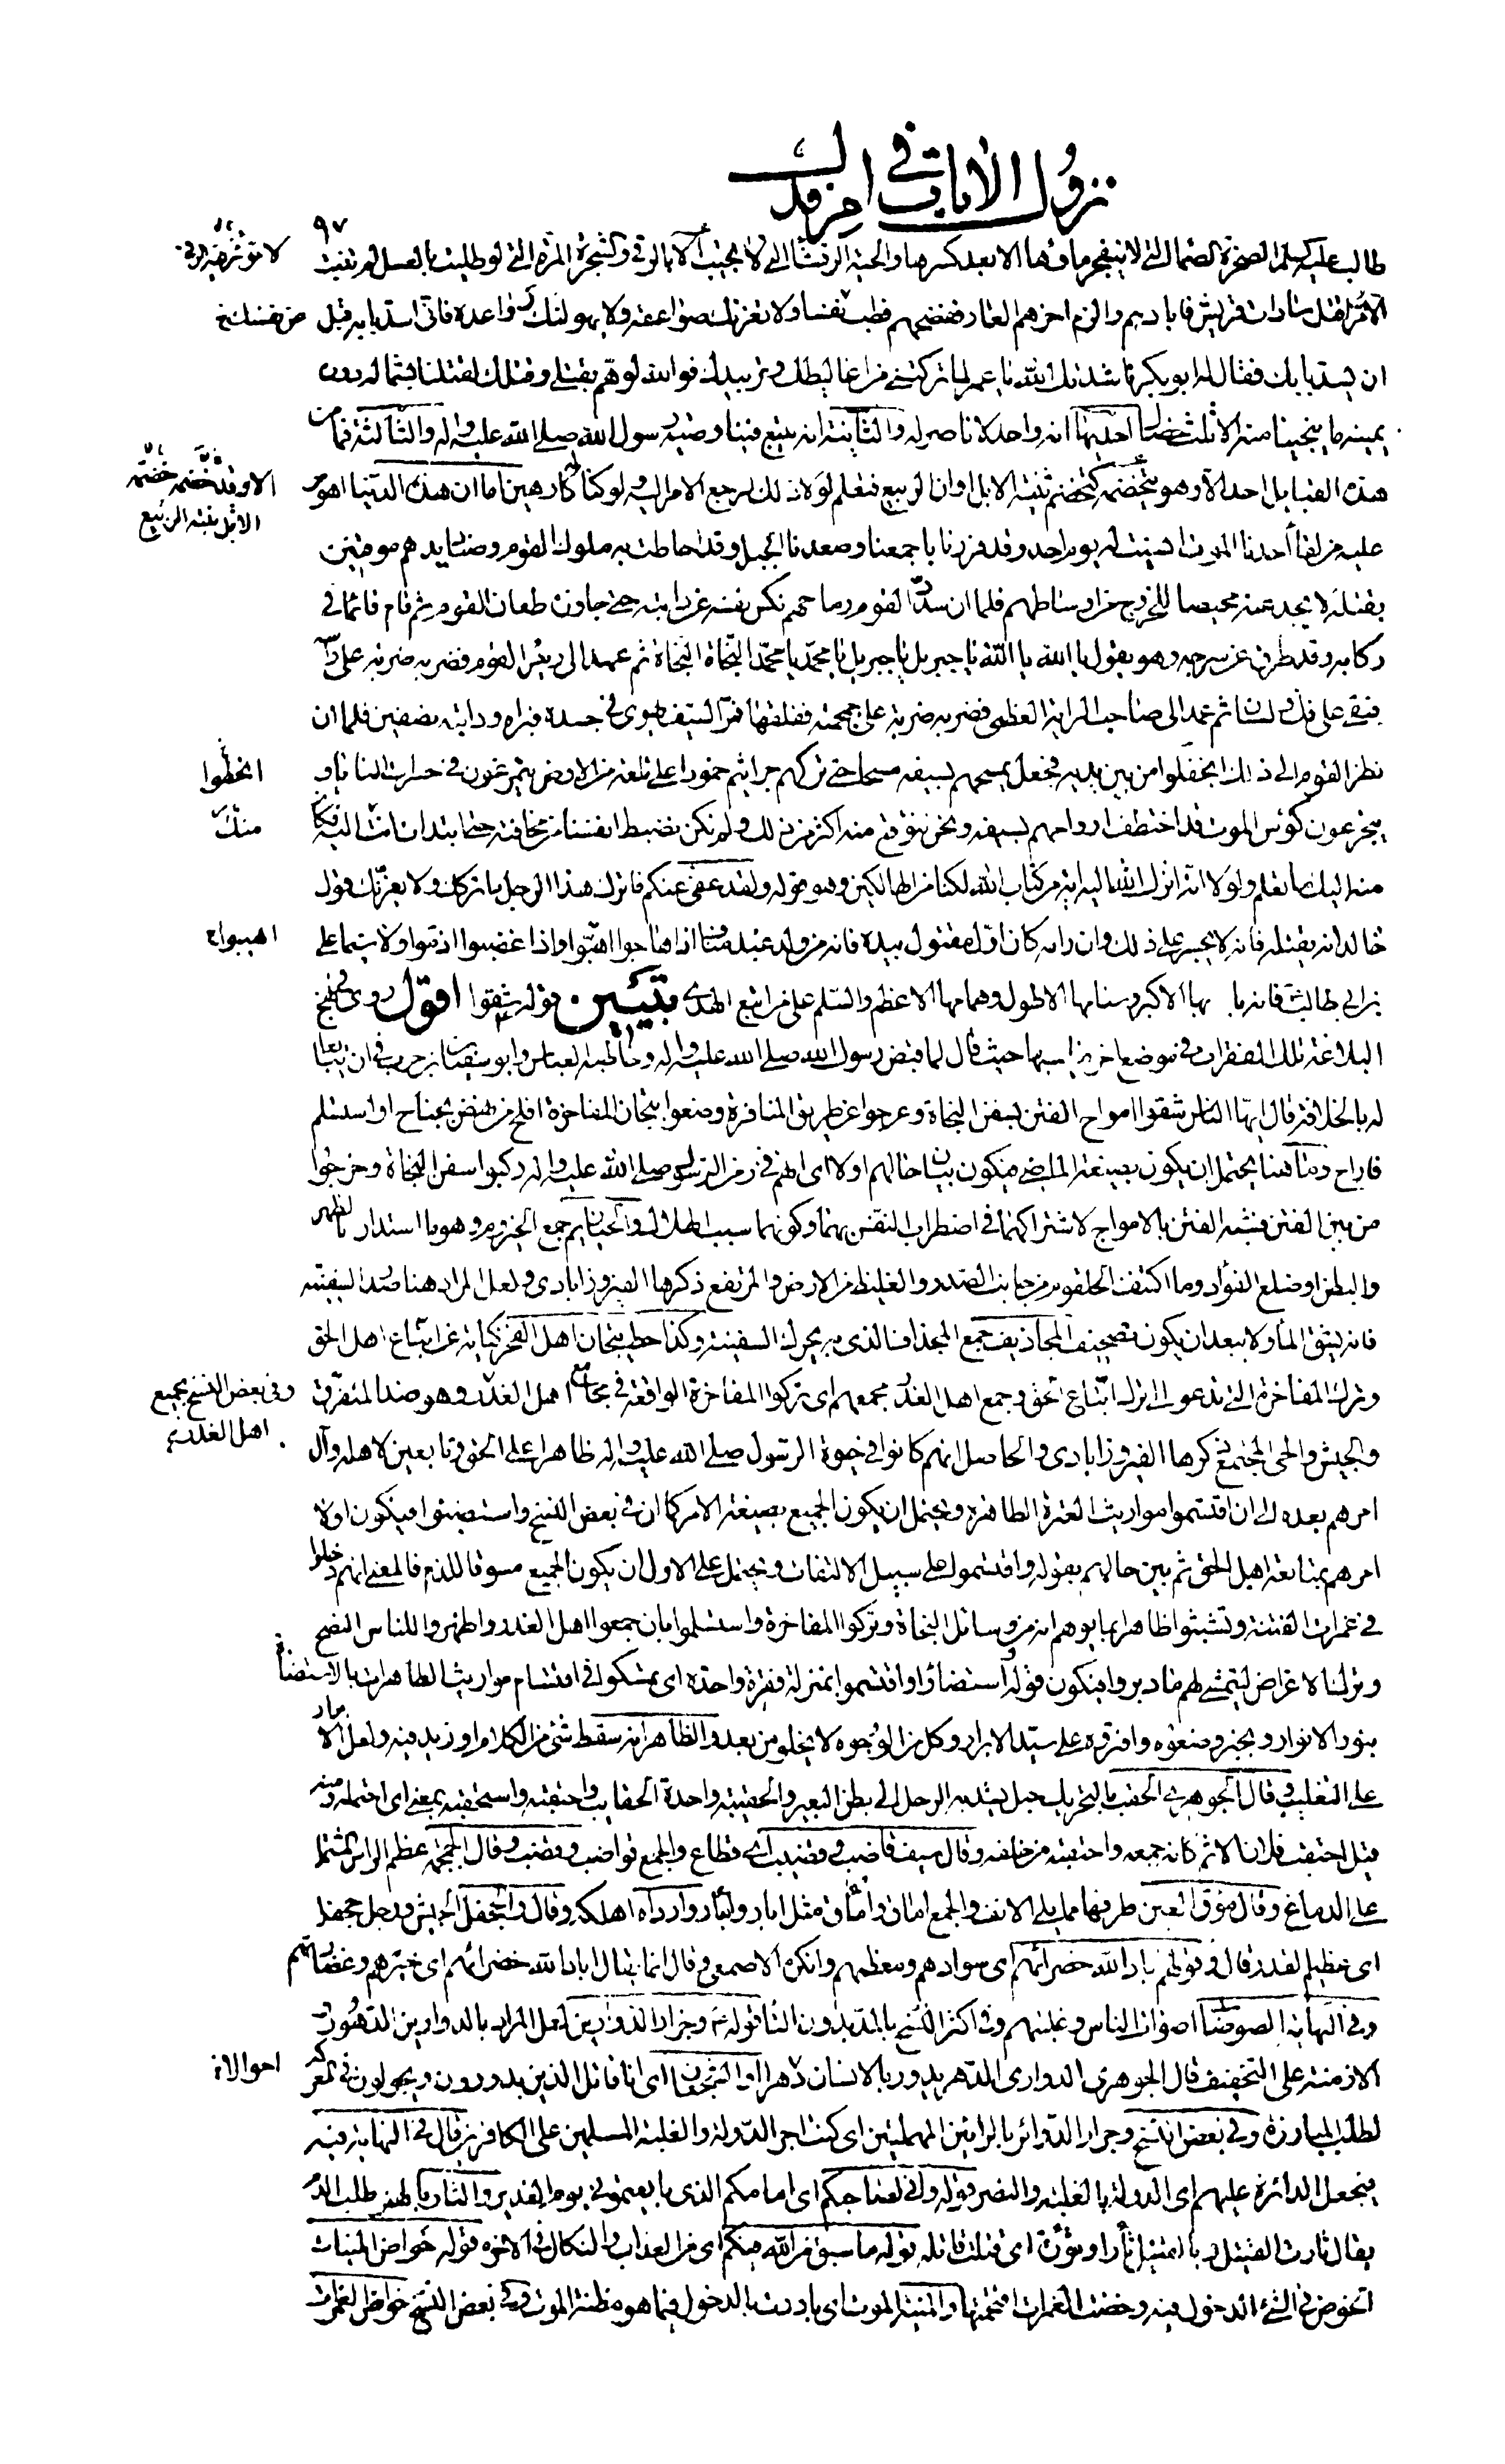 نزول الآيات في امر فدك
٩٧
طالب عليه السلم الصخرة الصماء التي لا ينفجر ماؤها الا بعد كسرها والحية الرقشاء التي لا تجيب الا بالرقى والشجرة المرة التي لو طليت بالعسل لم تنبت
لا تؤثر فيه الرقى
الا مرا قتل سادات قريش فابادهم والزم اخرهم العار ففضحهم فطب نفسا ولا تغرنك صواعقه ولا يهولنك رواعده فاني اسد بابه قبل
عن نفسك خ
ان يسد بابك فقال له ابو بكر ناشدتك الله يا عمر لما تركتني من اغاليطك وتربيدك فوالله لو هم بقتلي وقتلك لقتلنا بشماله دون
يمينه ما ينجينا منه الا ثلث خصال احديها انه واحد لا ناصر له والثانية انه يتبع فينا وصية رسول الله صلى الله عليه واله والثالثة فما من
هذه القبايل احد الا وهو يتخضمه كتخضم ثنية الابل اوان الربيع فتعلم لولا ذلك لرجع الامر اليه ولو كنا له كارهين اما ان هذه الدنيا اهون
الا وقد خضمه خضمة
الابل نبتة الربيع
عليه من لقاء احدنا الموت انسيت له يوم احد وقد فررنا باجمعنا وصعدنا الجبل وقد احاطت به ملوك القوم وصناديدهم موقنين
بقتله لا يجد عنه محيصا للخروج من اوساطهم فلما ان سدد القوم رماحهم نكس نفسه عن دابته حتى جاوزه طعان القوم ثم قام قائما في
ركابه وقد طرق عن سرجه وهو يقول يا الله يا الله يا جبريل يا جبريل يا محمد يا محمد النجاة النجاة ثم عمد الى رئيس القوم فضربه ضربة على راسه
فبقى على فك ولسان ثم عمد الى صاحب الراية العظمى فضربه ضربة على جمجمته ففلقها فمر السيف يهوي في جسده فبراه ودابته بنصفين فلما ان
نظر القوم الى ذلك انجفلوا من بين يديه فجعل يمسحهم بسيفه مسحا حتى تركهم جراثيم خمودا على تلعة من الارض يتمرغون في حسرات المنايا و
انخطوا
يتجرعون كؤس الموت قد اختطف ارواحهم بسيفه ونحن نتوقع منه اكثر من ذلك ولم نكن نضبط انفسنا من مخافته حتى ابتدات انت اليه فكان
منك
منه اليك ما تعلم ولولا انه انزل الله اليه اية من كتاب الله لكنا من الهالكين وهو قوله ولقد عفى عنكم فاترك هذا الرجل ما تركك ولا يغرنك قول
خالد انه يقتله فانه لا يجسر على ذلك وان رامه كان اول مقتول بيده فانه من ولد عبد مناف اذا هاجوا اهيبوا واذا غضبوا اذموا ولا سيما علي
اهيبوا خ
بن ابي طالب فانه بابها الاكبر وسنامها الاطول وهمامها الاعظم والسلم على من اتبع الهدى تبيين قوله شقوا اقول روى في نهج
البلاغة تلك الفقرات في موضع اخر يناسبها حيث قال لما قبض رسول الله صلى الله عليه واله وخاطبه العباس وابو سفيان بن حرب في ان يبايعا
له بالخلافة قال ايها الناس شقوا امواج الفتن بسفن النجاة وعرجوا عن طريق المنافرة وضعوا تيجان المفاخرة افلح من نهض بجناح او استسلم
فاراح وما هنا يحتمل ان يكون بصيغة الماضي فيكون بيان حالهم اولا اي انهم في زمن الرسول صلى الله عليه واله ركبوا سفن النجاة وخرجوا
من بين الفتن فشبه الفتن بالامواج لاشتراكهما في اضطراب النفس بهما وكونهما سبب الهلاك والحيازيم جمع الحيزوم وهو ما استدار بالظهر
والبطن او ضلع الفؤاد وما اكتنف الحلقوم من جانب الصدر والغليظ من الارض والمرتفع ذكرها الفيروزابادي ولعل المراد هنا صدر السفينة
فانه يشق الماء ولا يبعد ان يكون تصحيف المجاذيف جمع المجذاف الذي به يحرك السفينة وكذا حط تيجان اهل الفخر كناية عن اتباع اهل الحق
وترك المفاخرة التي تدعو الى ترك اتباع الحق وجمع اهل الغدر مجمعهم اي تركوا المفاخرة الواقعة في مجامع اهل الغدر وهو ضد المتفرق
وفي بعض النسخ بجميع
اهل الغدر
والجيش والحي المجتمع ذكرها الفيروزابادي والحاصل انهم كانوا في حيوة الرسول صلى الله عليه واله ظاهرا على الحق وتابعين لاهله وآل
امرهم بعده الى ان اقتسموا مواريث العترة الطاهرة ويحتمل ان يكون الجميع بصيغة الامر كما ان في بعض النسخ واستضيئوا فيكون اولا
امرهم بمتابعة اهل الحق ثم بين حالهم بقوله واقتسموا على سبيل الالتفات ويحتمل على الاول ان يكون الجميع مسوقا للذم فالمعنى انهم دخلوا
في غمرات الفتنة وتشبثوا ظاهرا بما يوهم انه من وسائل النجاة وتركوا المفاخرة واستسلموا بان جمعوا اهل الغدر واظهروا للناس النصح
وترك الاغراض ليتمشى لهم ما دبروا فيكون قوله استضاؤا واقتسموا بمنزلة فقرة واحدة اي تمسكوا في اقتسام مواريث الطاهرات بالاستضاءة
بنور الانوار وبخبر وضعوه وافتروه على سيد الابرار وكل من الوجوه لا يخلو من بعد والظاهر انه سقط شئ من الكلام او زيد فيه ولعل الابار
على التغليب وقال الجوهري الحقب بالتحريك حبل يشد به الرحل الى بطن البعير والحقيبة واحدة الحقايب واحتقبه واستحقبه بمعنى اي احتمله ومنه
قيل احتقب فلان الاثم كانه جمعه واحتقبه من خلفه وقال سيف قاضب وقضيب اي قطاع والجمع قواضب وقضب وقال الجمجمة عظم الراس المشتمل
على الدماغ وقال مؤق العين طرفها مما يلي الانف والجمع اماق وآماق مثل ابار وآبار وارداه اهلكه وقال والجحفل الجيش ورجل جحفل
اي عظيم القدر وقال وقولهم اباد الله خضرائهم اي سوادهم ومعظمهم وانكره الاصمعي وقال انما يقال اباد الله غضرائهم اي خيرهم وغضارتهم
وفي النهاية الصوضاء اصوات الناس وغلبتهم وفي اكثر النسخ بالمد بدون التاء قوله وجزار الدوارين لعل المراد بالدوارين الدهور و
الازمنة على التخفيف قال الجوهري الدواري الدهر يدور بالانسان دهرا او الشجعان اي انا قاتل الذين يدورون ويجولون في المعركة
احوالا خ
لطلب المبارزة وفي بعض النسخ وجرار الدوائر بالرائين المهملتين اي كنت اجر الدولة والغلبة للمسلمين على الكافرين قال في النهاية فيه
فيجعل الدائرة عليهم اي الدولة بالغلبة والنصر قوله واني لصاحبكم اي امامكم الذي بايعتموني يوم الغدير والثار بالهمز طلب الدم
يقال ثارت القتيل وبالقتيل ثأرا وثؤرة اي قتلت قاتله قوله ما سبق من الله فيكم اي من العذاب والنكال في الآخرة قوله خواض المنيات
الخوض في الشئ الدخول فيه وخضت الغمرات اقتحمتها والمنية الموت اي بادرت بالدخول فيما هو مظنة الموت وفي بعض النسخ خواض الغمرات